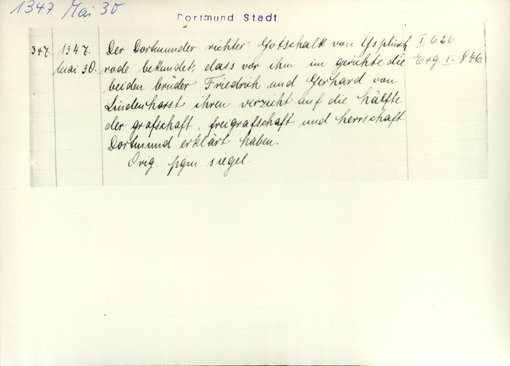 1347 Mai 30
Dortmund Stadt
347. 1347. Der Dortmunder richter Gotschalk von Ysplinck I 626
Mai 30. rode bekundet, dass vor ihm im gerichte die Erg. I. 846
beiden brüder Friedrich und Gerhard von
Lindenhorst ihren verzicht auf die hälfte
der grafschaft, freigrafschaft und herrschaft
Dortmund erklärt haben.
Orig. pgm siegel.